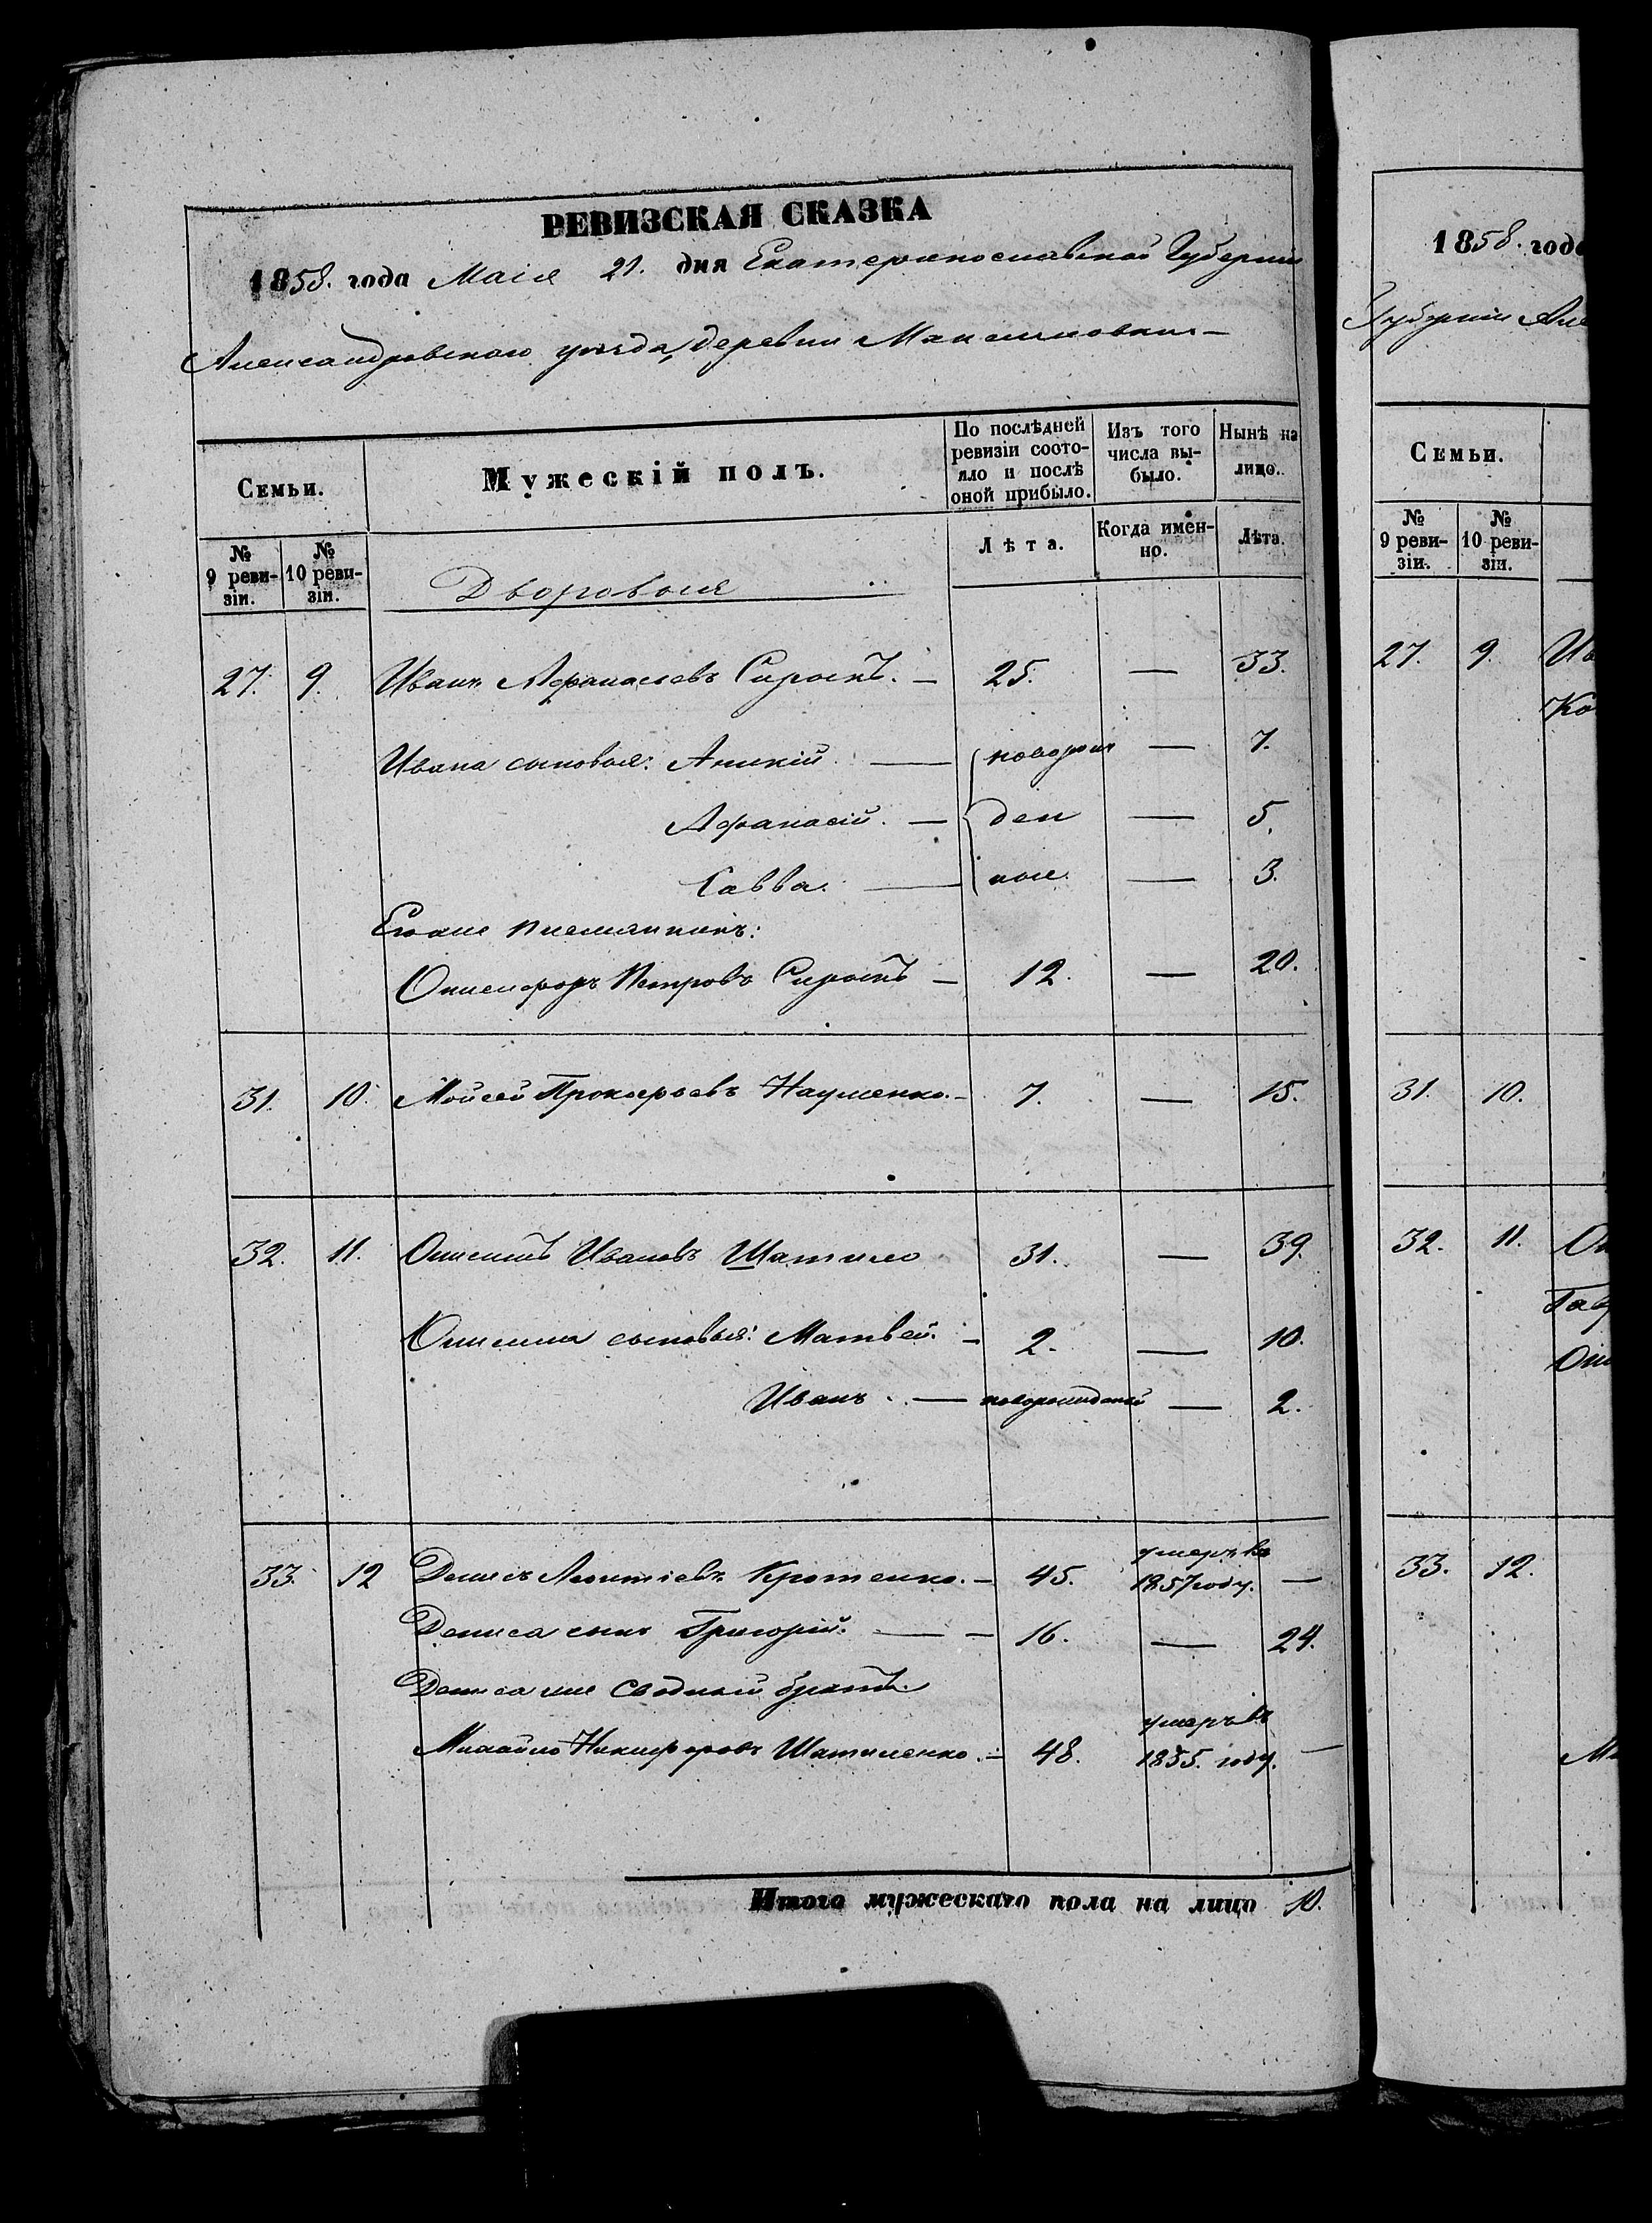 РЕВИЗСКАЯ СКАЗКА
1858. года Маія 21. дня Екатеринославской Губерніи
Александровскаго уѣзда, деревни Максимовки
Семьи.
Мужескій полъ.
По послѣдней ревизіи состояло и послѣ оной прибыло.
Изъ того числа выбыло.
Нынѣ на лицо.
№ 9 ревизіи.
№ 10 ревизіи.
Дворовыя
Лѣта.
Когда именно.
Лѣта.
27. 9. Иванъ Афанасьевъ — 25. — 33.
Ивана сыновья: Аникій — новорож — 7.
Афанасій. — ден — 5.
Савва. — ные — 3.
Его же племянникъ:
Онисифоръ Петровъ — 12. — 20.
31. 10. Мойсей Прокофьевъ Науменко. — 7. — 15.
32. 11. Онисимъ Ивановъ Шатило 31. — 39.
Онисима сыновья: Матвей. — 2. — 10.
Иванъ. — новорожденый — 2.
33. 12 Денисъ Леонтіевъ Кротенко. — 45. умеръ въ 1857 году. —
Дениса сынъ Григорій. — 16. — 24.
Дениса же сводный братъ
Михайло Никифоровъ Шатиленко. — 48. умеръ въ 1855. году. —
Итого мужескаго пола на лицо 10.
1858. года
Губерніи Але
Семьи.
№ 9 ревизіи.
№ 10 ревизіи.
27. 9. Ив
31. 10.
32. 11. Он
Гав
Они
33. 12.
Ми